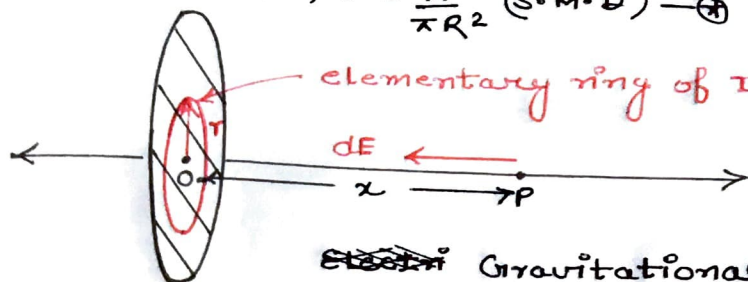 πR² (S.M.D) — ⊛
elementary ring of
r
dE
O
x
P
Gravitationa